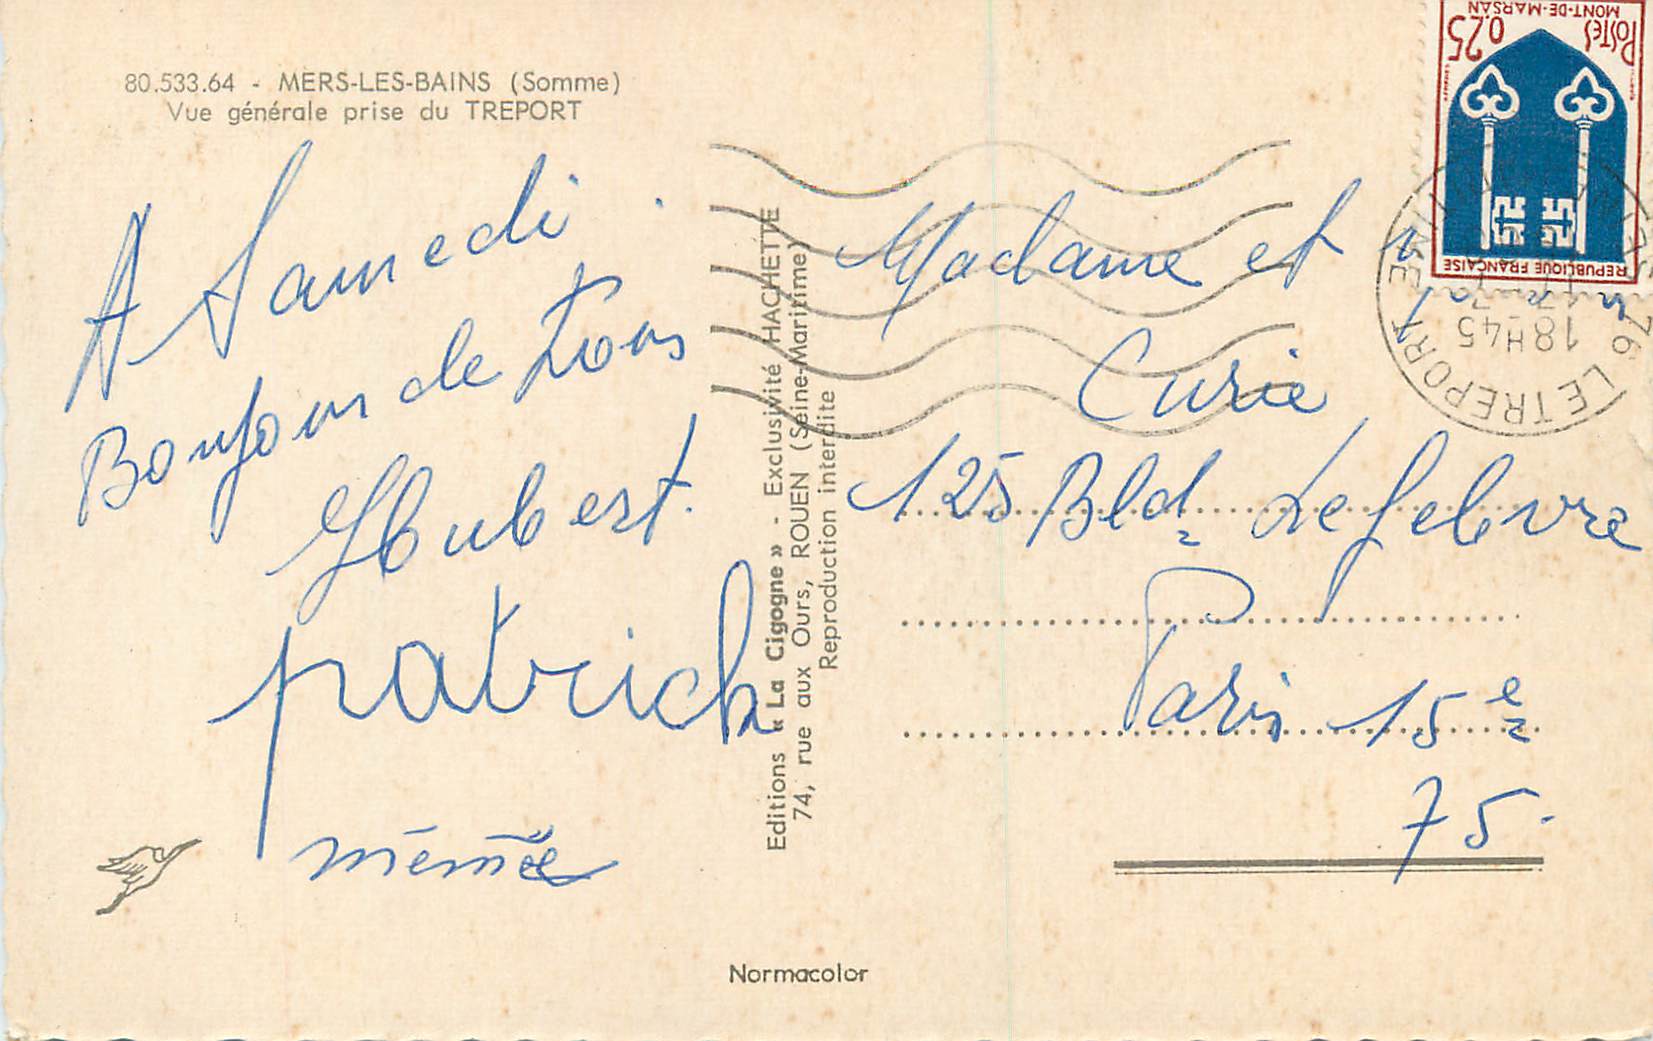 80.533.64 - MERS-LES-BAINS (Somme)
Vue générale prise du TREPORT
A Samedi
Bonjour de Tous
Hubert.
patrick
mémée
Editions « La Cigogne » - Exclusivité HACHETTE
74, rue aux Ours, ROUEN (Seine-Maritime)
Reproduction interdite
Normacolor
Madame et
Curie
125 Bld Lefebvre
Paris 15e
75.
MONT-DE-MARSAN
POSTES
0,25
REPUBLIQUE FRANÇAISE
18H45
76 LE TREPORT